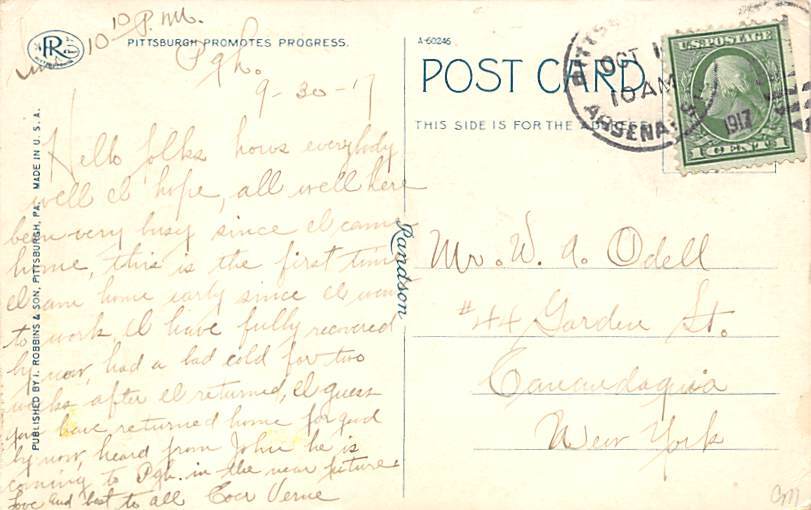 10 10 P.M.
PITTSBURGH PROMOTES PROGRESS.
Pgh.
9-30-17
Hello folks hows everybody
well I hope, all well here
been very busy since I came
home, this is the first time
I am home early since I went
to work, I have fully recovered
by now, had a bad cold for two
weeks after I returned, I guess
you have returned home for good
by now, heard from John he is
coming to Pgh. in the near future
Love and best to all Verne
PUBLISHED BY I. ROBBINS & SON, PITTSBURGH, PA. MADE IN U.S.A.
A-60246
POST CARD
THIS SIDE IS FOR THE
Randson
OCT 1
10 AM
1917
ARSENAL
U.S. POSTAGE
1 CENT 1
Mr. W. A. Odell
#44 Garden St.
Canandaguia
New York